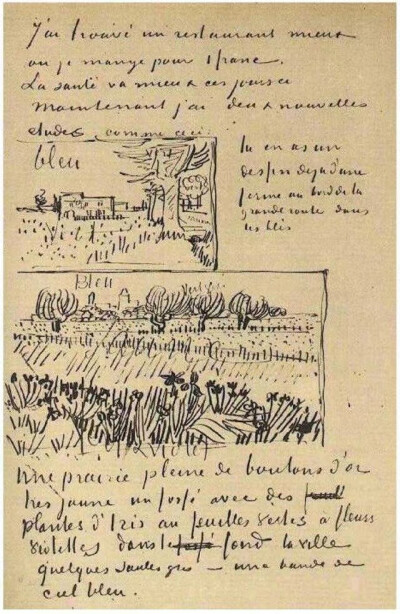 J'ai trouvé un restaurant mieux
ou je mange pour 1 franc.
La santé va mieux ces jours ci
Maintenant j'ai deux nouvelles
etudes, comme ceci
bleu
tu en as un
dessin deja d'une
ferme au bord de la
grande route dans
les blés
Bleu
Violet
Une prairie pleine de boutons d'or
tres jaune un fossé avec des
plantes d'Iris aux feuilles vertes à fleurs
violettes dans le fond la ville
quelques saules gris – une bande de
ciel bleu.